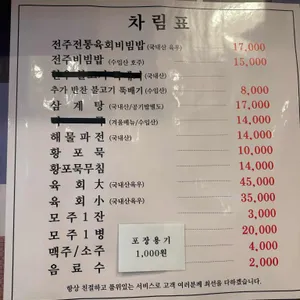 차림표
전주전통육회비빔밥 (국내산 육우) 17,000
전주비빔밥 (수입산 호주) 15,000
(국내산)
추가 반찬 불고기 뚝배기 (수입산) 8,000
삼계탕 (국내산/공기밥별도) 17,000
(겨울메뉴/수입산) 14,000
해물파전 (국내산) 14,000
황포묵 10,000
황포묵무침 14,000
육회 大 (국내산육우) 45,000
육회 小 (국내산육우) 35,000
모주1잔 3,000
모주1병 20,000
맥주/소주 4,000
음료수 2,000
포장용기
1,000원
항상 친절하고 품위있는 서비스로 고객 여러분께 최선을 다하겠습니다.